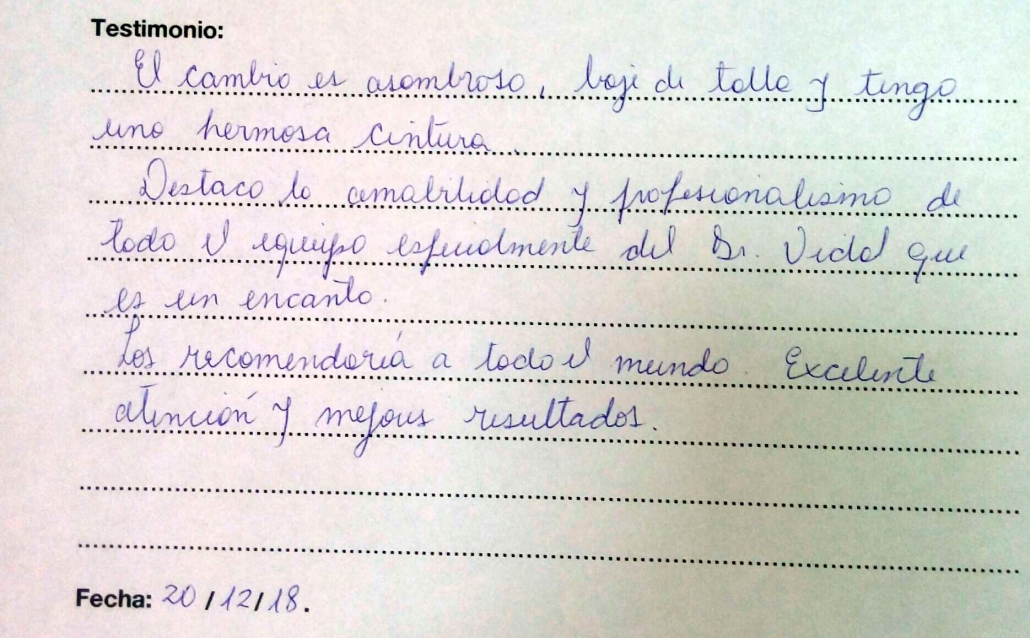 Testimonio:
El cambio es asombroso, baje de talla y tengo
una hermosa cintura.
Destaco la amabilidad y profesionalismo de
todo el equipo especialmente del Dr. Vidal que
es un encanto.
Los recomendaría a todo el mundo. Excelente
atención y mejores resultados.
Fecha: 20/12/18.